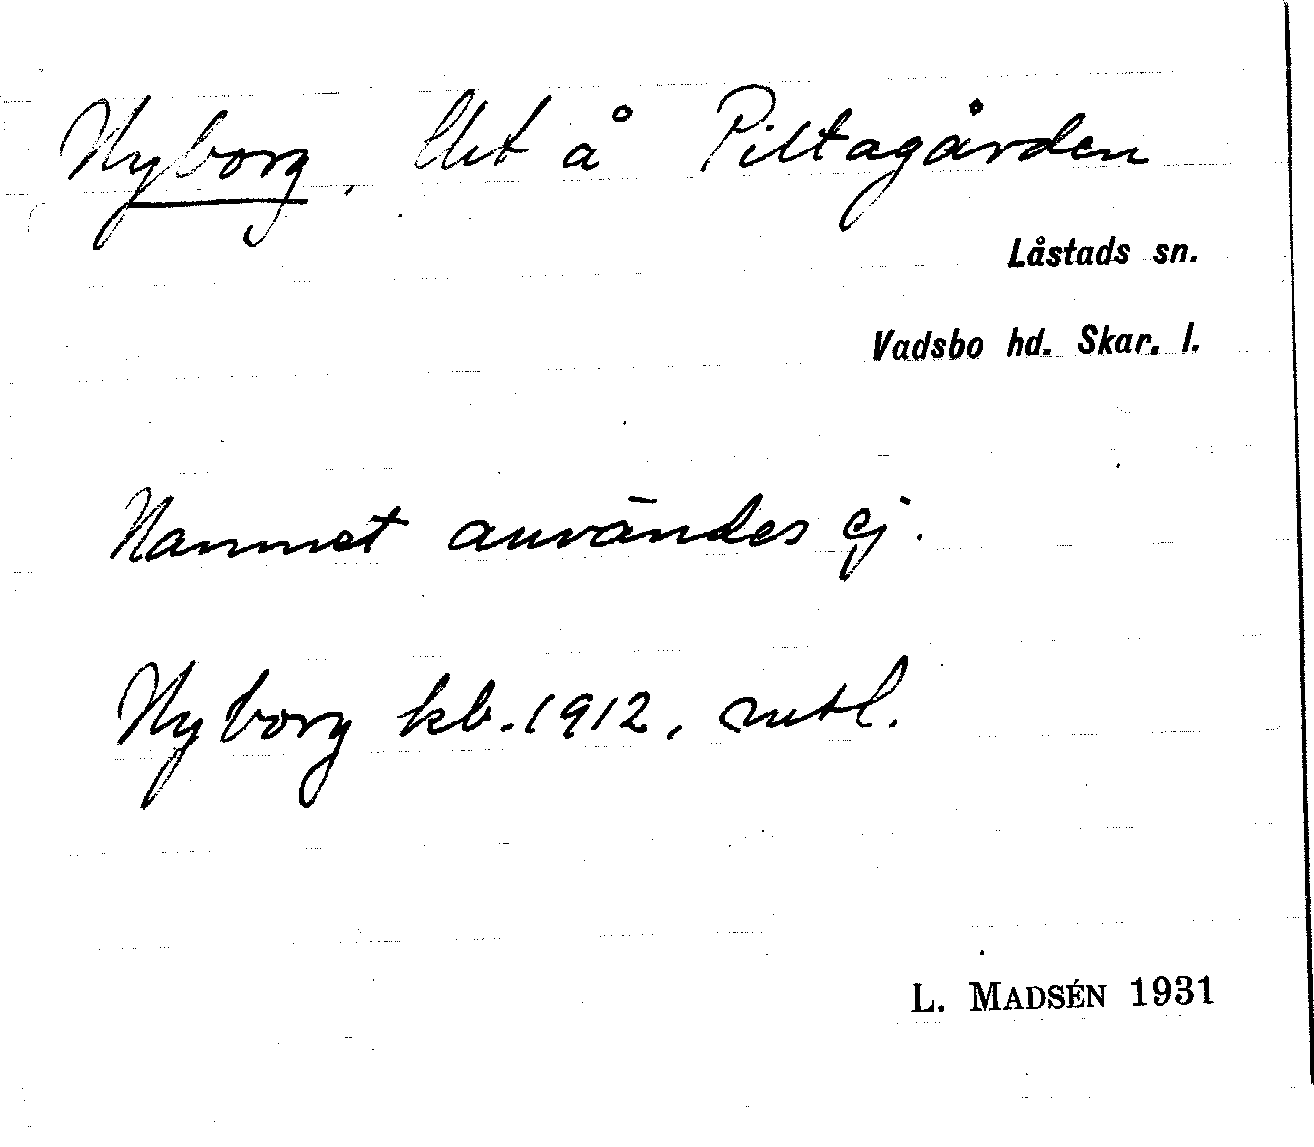 Nyborg, lht å Piltagården
Låstads sn.
Vadsbo hd. Skar. l.
Namnet användes ej.
Nyborg kb. 1912, mtl.
L. MADSÉN 1931